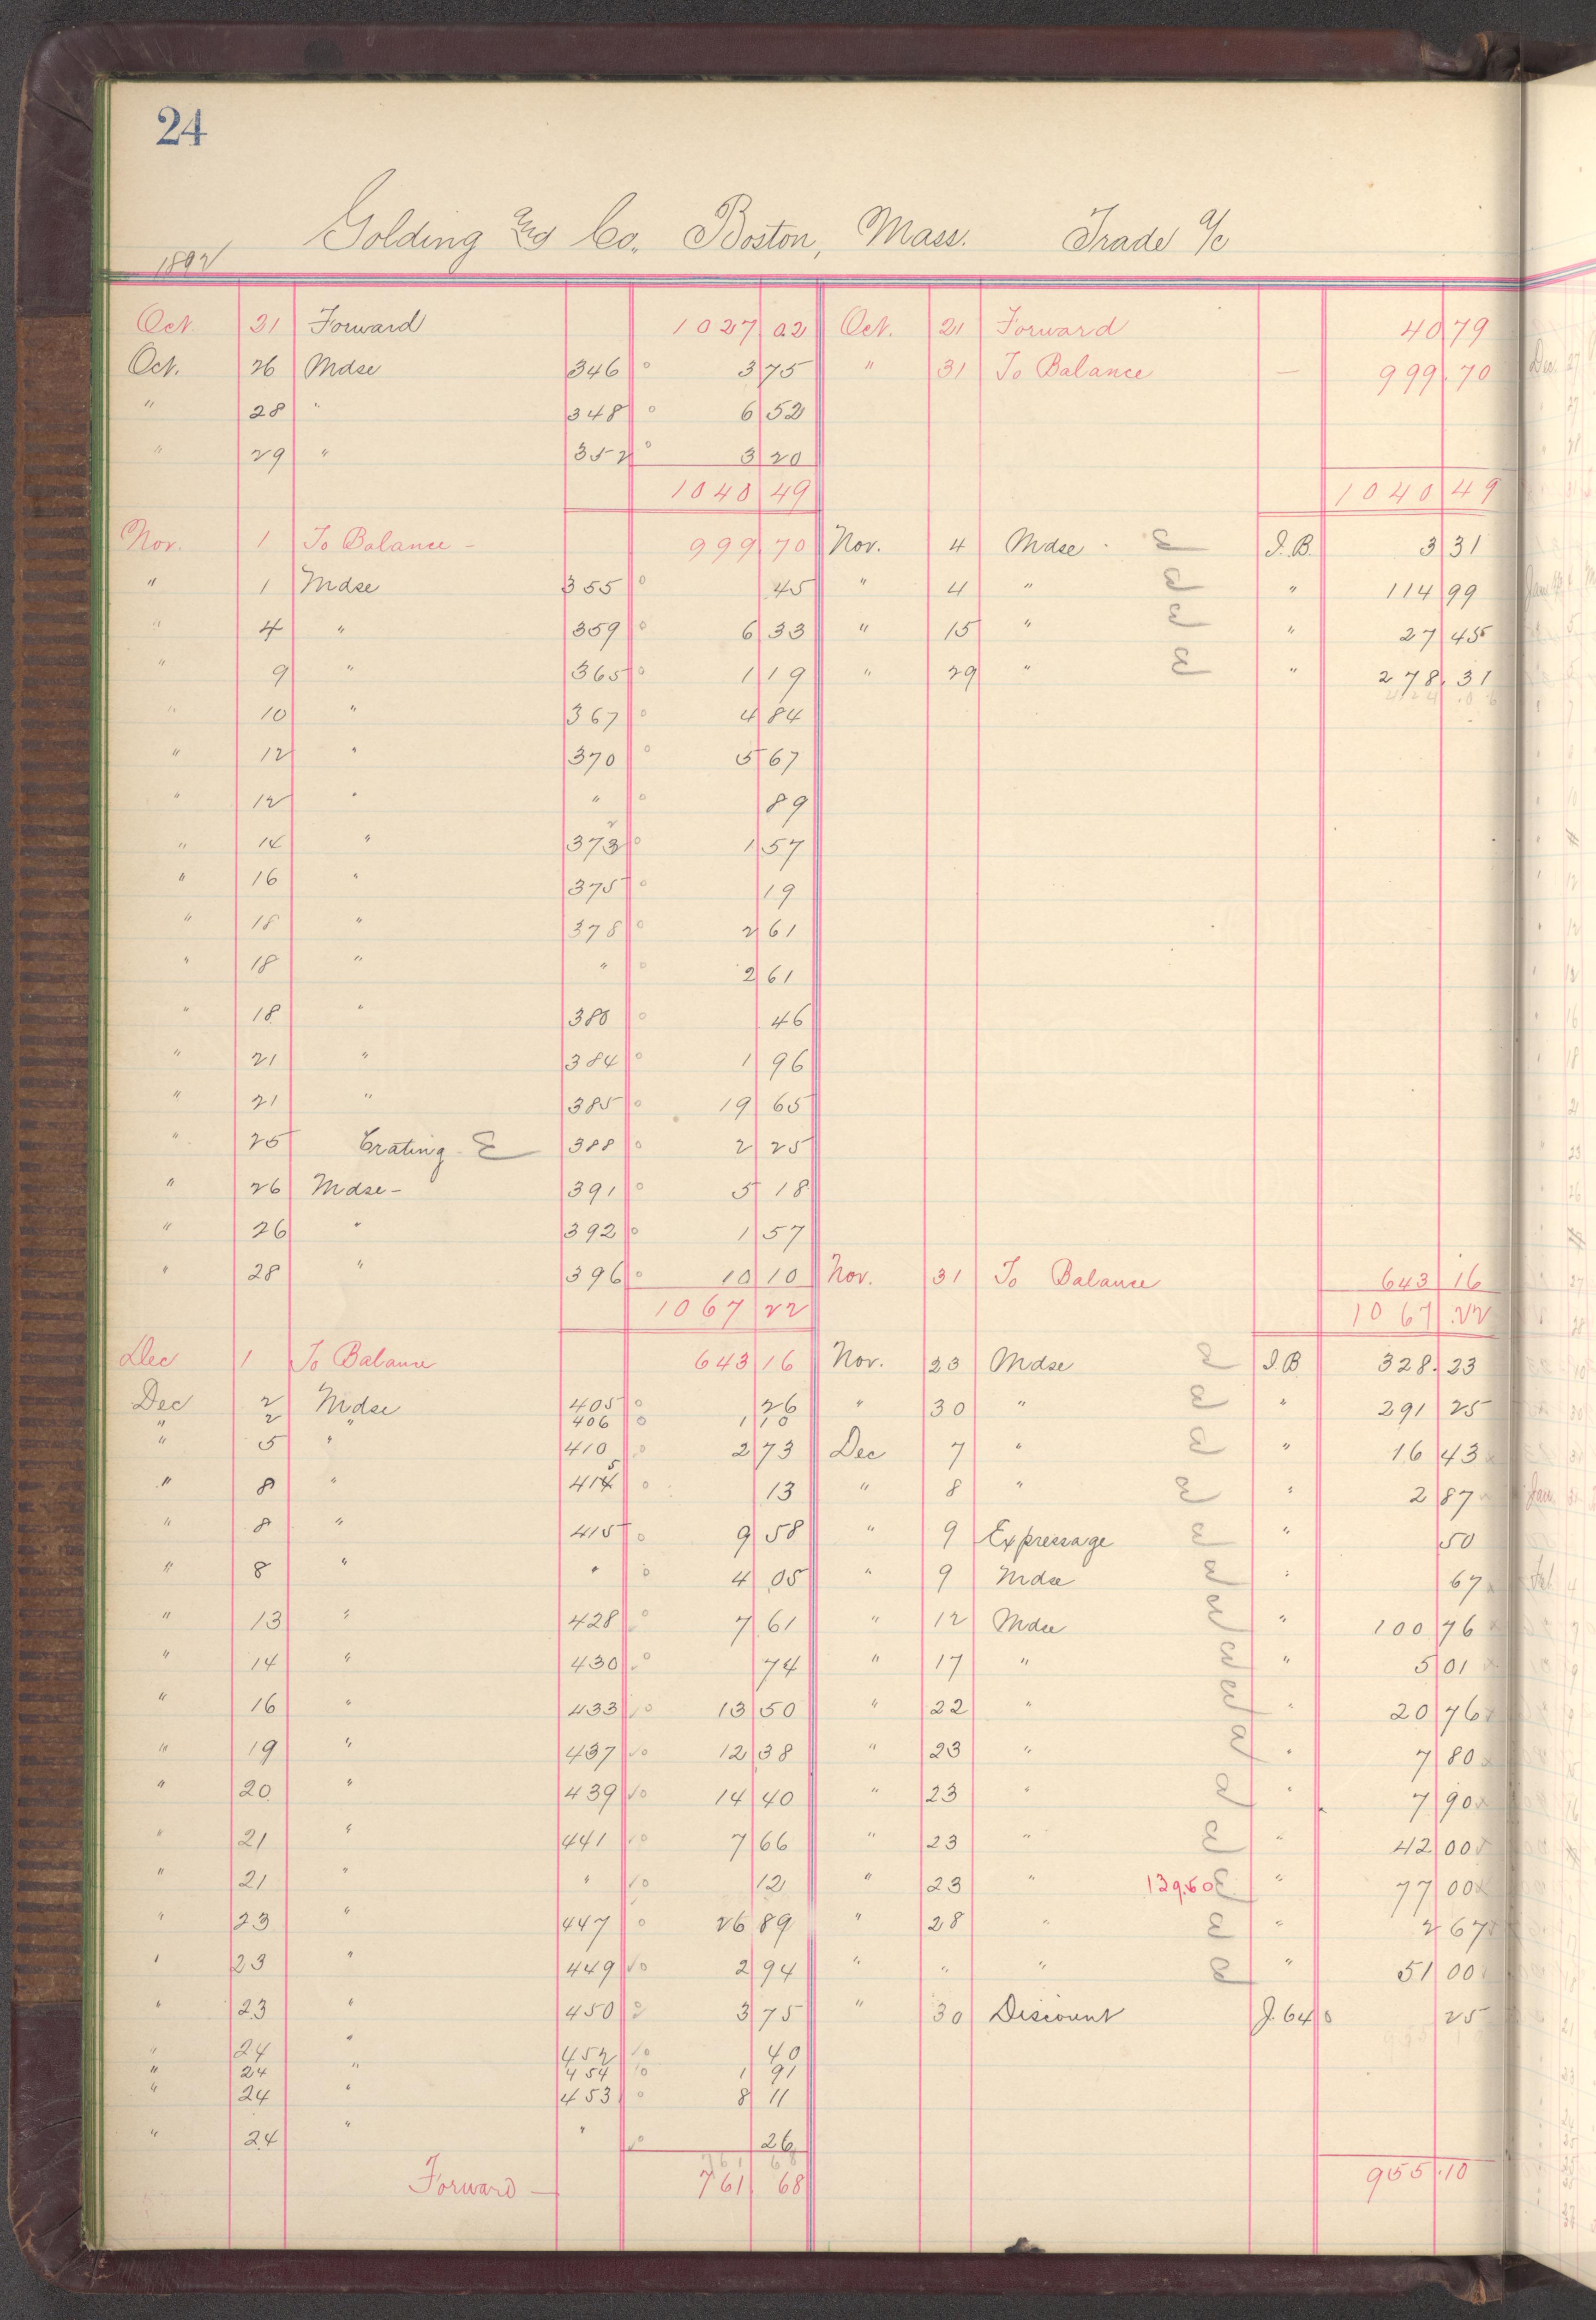 24
Golding and Co. Boston, Mass. Trade a/c
1892
Oct. 21 Forward 1027 02 Oct. 21 Forward 40 79
Oct. 26 Mdse 346 o 3 75 " 31 To Balance — 999.70
" 28 " 348 o 6 52
" 29 " 352 o 3 20
1040 49 1040 49
Nov. 1 To Balance - 999 70 Nov. 4 Mdse I.B. 3 31
" 1 Mdse 355 o 45 " 4 " " 114 99
" 4 " 359 o 6 33 " 15 " " 27 45
" 9 " 365 o 1 19 " 29 " " 278.31
" 10 " 367 o 4 84
" 12 " 370 o 5 67
" 12 " " o 89
" 14 " 373 o 1 57
" 16 " 375 o 19
" 18 " 378 o 2 61
" 18 " " o 2 61
" 18 " 380 o 46
" 21 " 384 o 1 96
" 21 " 385 o 19 65
" 25 Crating 388 o 2 25
" 26 Mdse - 391 o 5 18
" 26 " 392 o 1 57
" 28 " 396 o 10 10 Nov. 31 To Balance 643 16
1067 22 1067.22
Dec 1 To Balance 643 16 Nov. 23 Mdse I.B 328.23
Dec 2 Mdse 405 o 26 " 30 " " 291 25
" 2 " 406 o 1 10
" 5 " 410 o 2 73 Dec 7 " " 16 43
" 8 " 415 o 13 " 8 " " 2 87
" 8 " 415 o 9 58 " 9 Expressage " 50
" 8 " " o 4 05 " 9 Mdse " 67
" 13 " 428 o 7 61 " 12 Mdse " 100 76
" 14 " 430 o 74 " 17 " " 5 01
" 16 " 433 o 13 50 " 22 " " 20 76
" 19 " 437 o 12 38 " 23 " " 7 80
" 20 " 439 o 14 40 " 23 " " 7 90
" 21 " 441 o 7 66 " 23 " " 42 00
" 21 " " o 12 " 23 " 139.60 " 77 00
" 23 " 447 o 26 89 " 28 " " 2 67
" 23 " 449 o 2 94 " " " " 51 00
" 23 " 450 o 3 75 " 30 Discount J. 64 o 25
" 24 " 452 o 40
" 24 " 454 o 1 91
" 24 " 453 o 8 11
" 24 " " o 26
761 68
Forward — 761 68 955.10